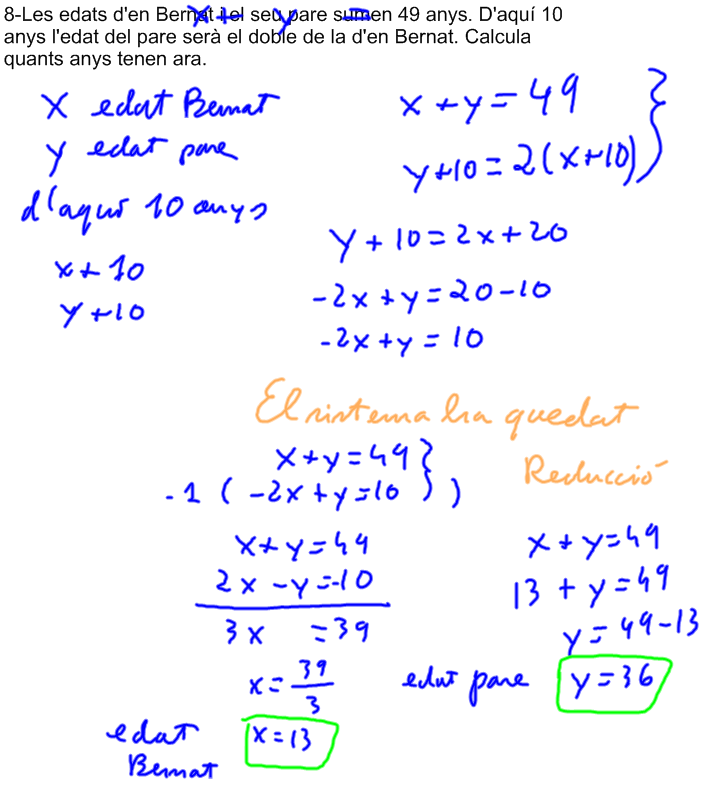 8-Les edats d'en Bernat i el seu pare sumen 49 anys. D'aquí 10
anys l'edat del pare serà el doble de la d'en Bernat. Calcula
quants anys tenen ara.
x + y =
x edat Bernat
y edat pare
d'aquí 10 anys
x+10
y+10
x+y=49 }
y+10=2(x+10)
y+10=2x+20
-2x+y=20-10
-2x+y=10
El sistema ha quedat
x+y=49 }
-1(-2x+y=10)
Reducció
x+y=49
2x-y=-10
3x =39
x=39/3
edat
Bernat
x=13
x+y=49
13+y=49
y=49-13
edat pare y=36